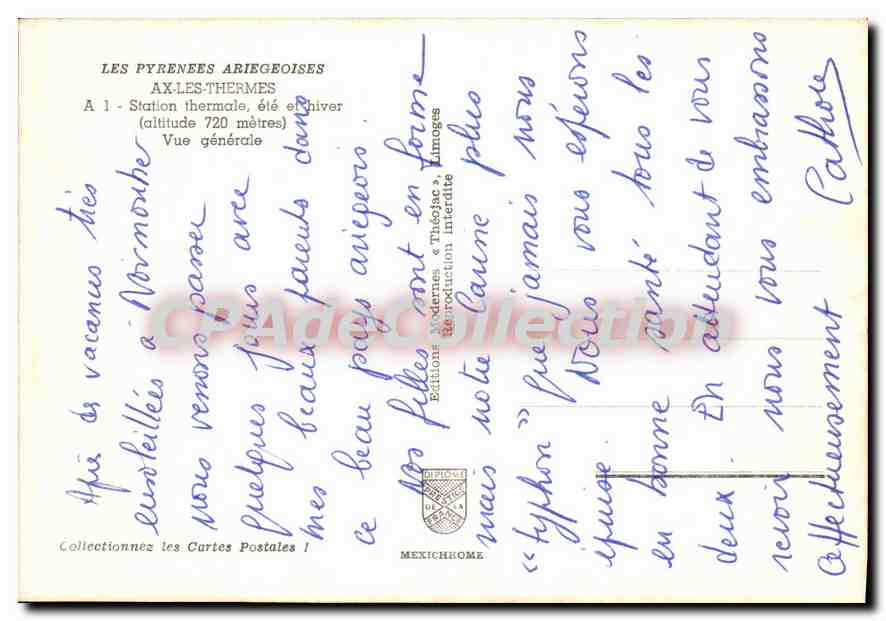 LES PYRENEES ARIEGEOISES
AX-LES-THERMES
A 1 - Station thermale, été et hiver
(altitude 720 mètres)
Vue générale
Après des vacances très
ensoleillées à Noirmoutier
nous venons passer
quelques jours avec
mes beaux parents dans
ce beau pays ariégeois.
Nos filles sont en forme
mais notre Carine plus
« typhon » que jamais nous
épuise. Nous vous espérons
en bonne santé tous les
deux. En attendant de vous
revoir nous vous embrassons
affectueusement
Editions Modernes « Théojac », Limoges
Reproduction interdite
DIPLOME
PRESTIGE
DE LA
FRANCE
MEXICHROME
Collectionnez les Cartes Postales !
CPAdeCollection